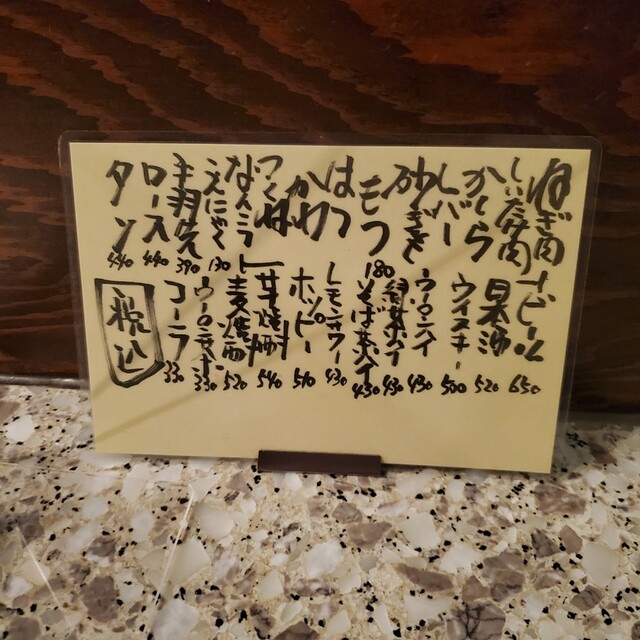 ねぎ肉
かしら
レバー
砂ぎも
もつ
はつ
かわ
つくね
なんこつ
180
こんにゃく 130
手羽先 390
ロース 440
タン 440
ビール 650
日本酒 520
ウイスキー 500
ウーロンハイ 430
緑茶ハイ 430
そば茶ハイ 430
レモンサワー 430
ホッピー 510
芋焼酎 540
麦焼酎 520
ウーロン茶 330
コーラ 330
税込